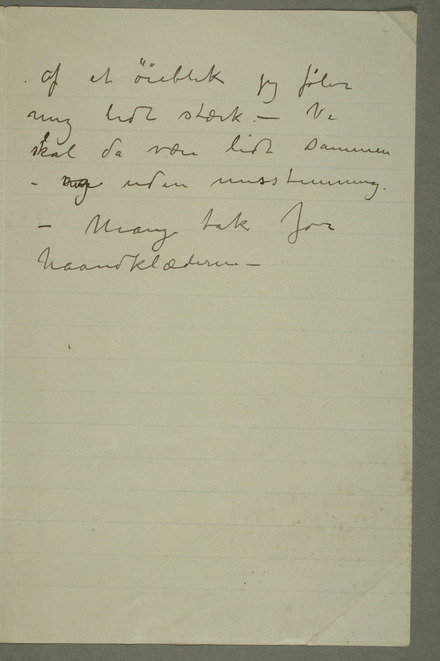 af et öieblik jeg föler
mig lidt stærk. – Vi
skal da være lidt sammen
– og uden misstemning.
– Mange tak for
haandklæderne –